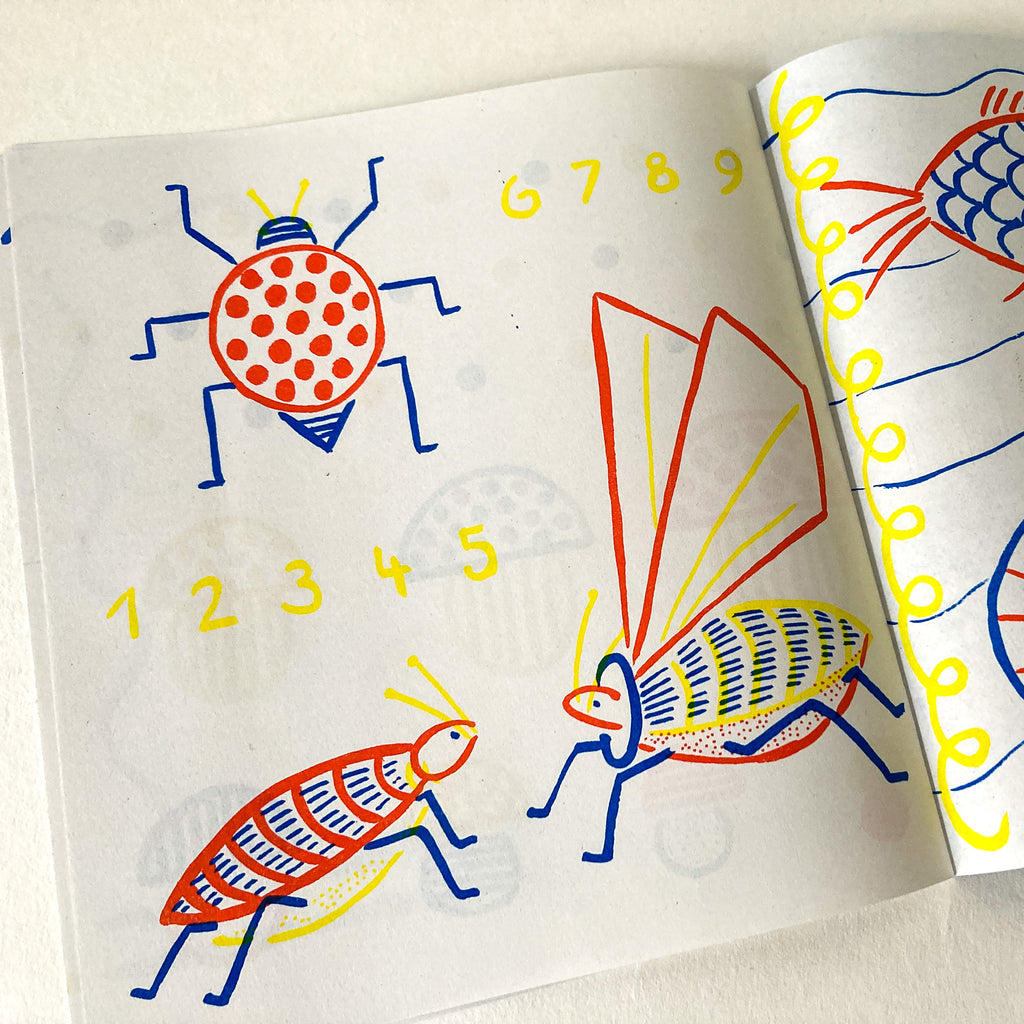 6 7 8 9
1 2 3 4 5